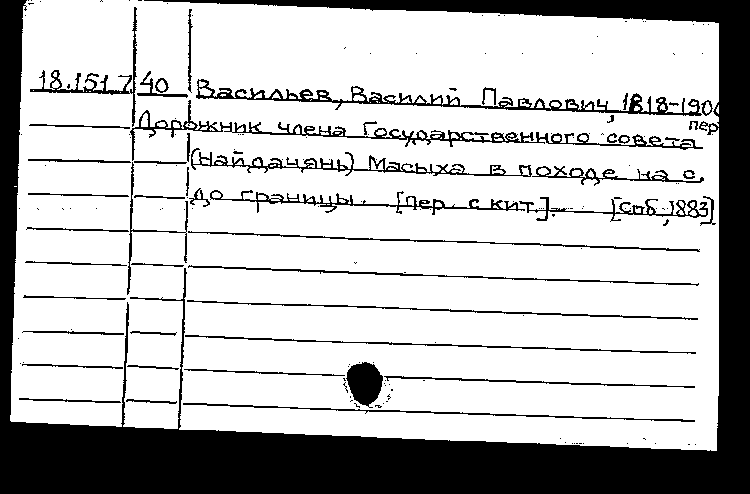 18.151.7.40 Васильев, Василий Павлович, 1818-1900
пер
Дорожник члена Государственного совета
(Найдачянь) Масыха в походе на с.
до границы. [Пер. с кит.]. - [Спб, 1883]